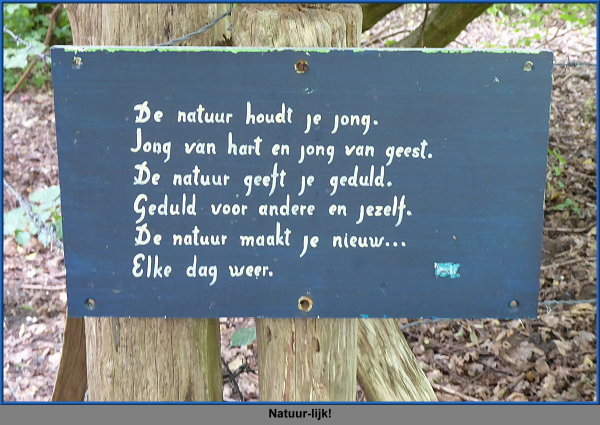 De natuur houdt je jong.
Jong van hart en jong van geest.
De natuur geeft je geduld.
Geduld voor andere en jezelf.
De natuur maakt je nieuw...
Elke dag weer.
Natuur-lijk!